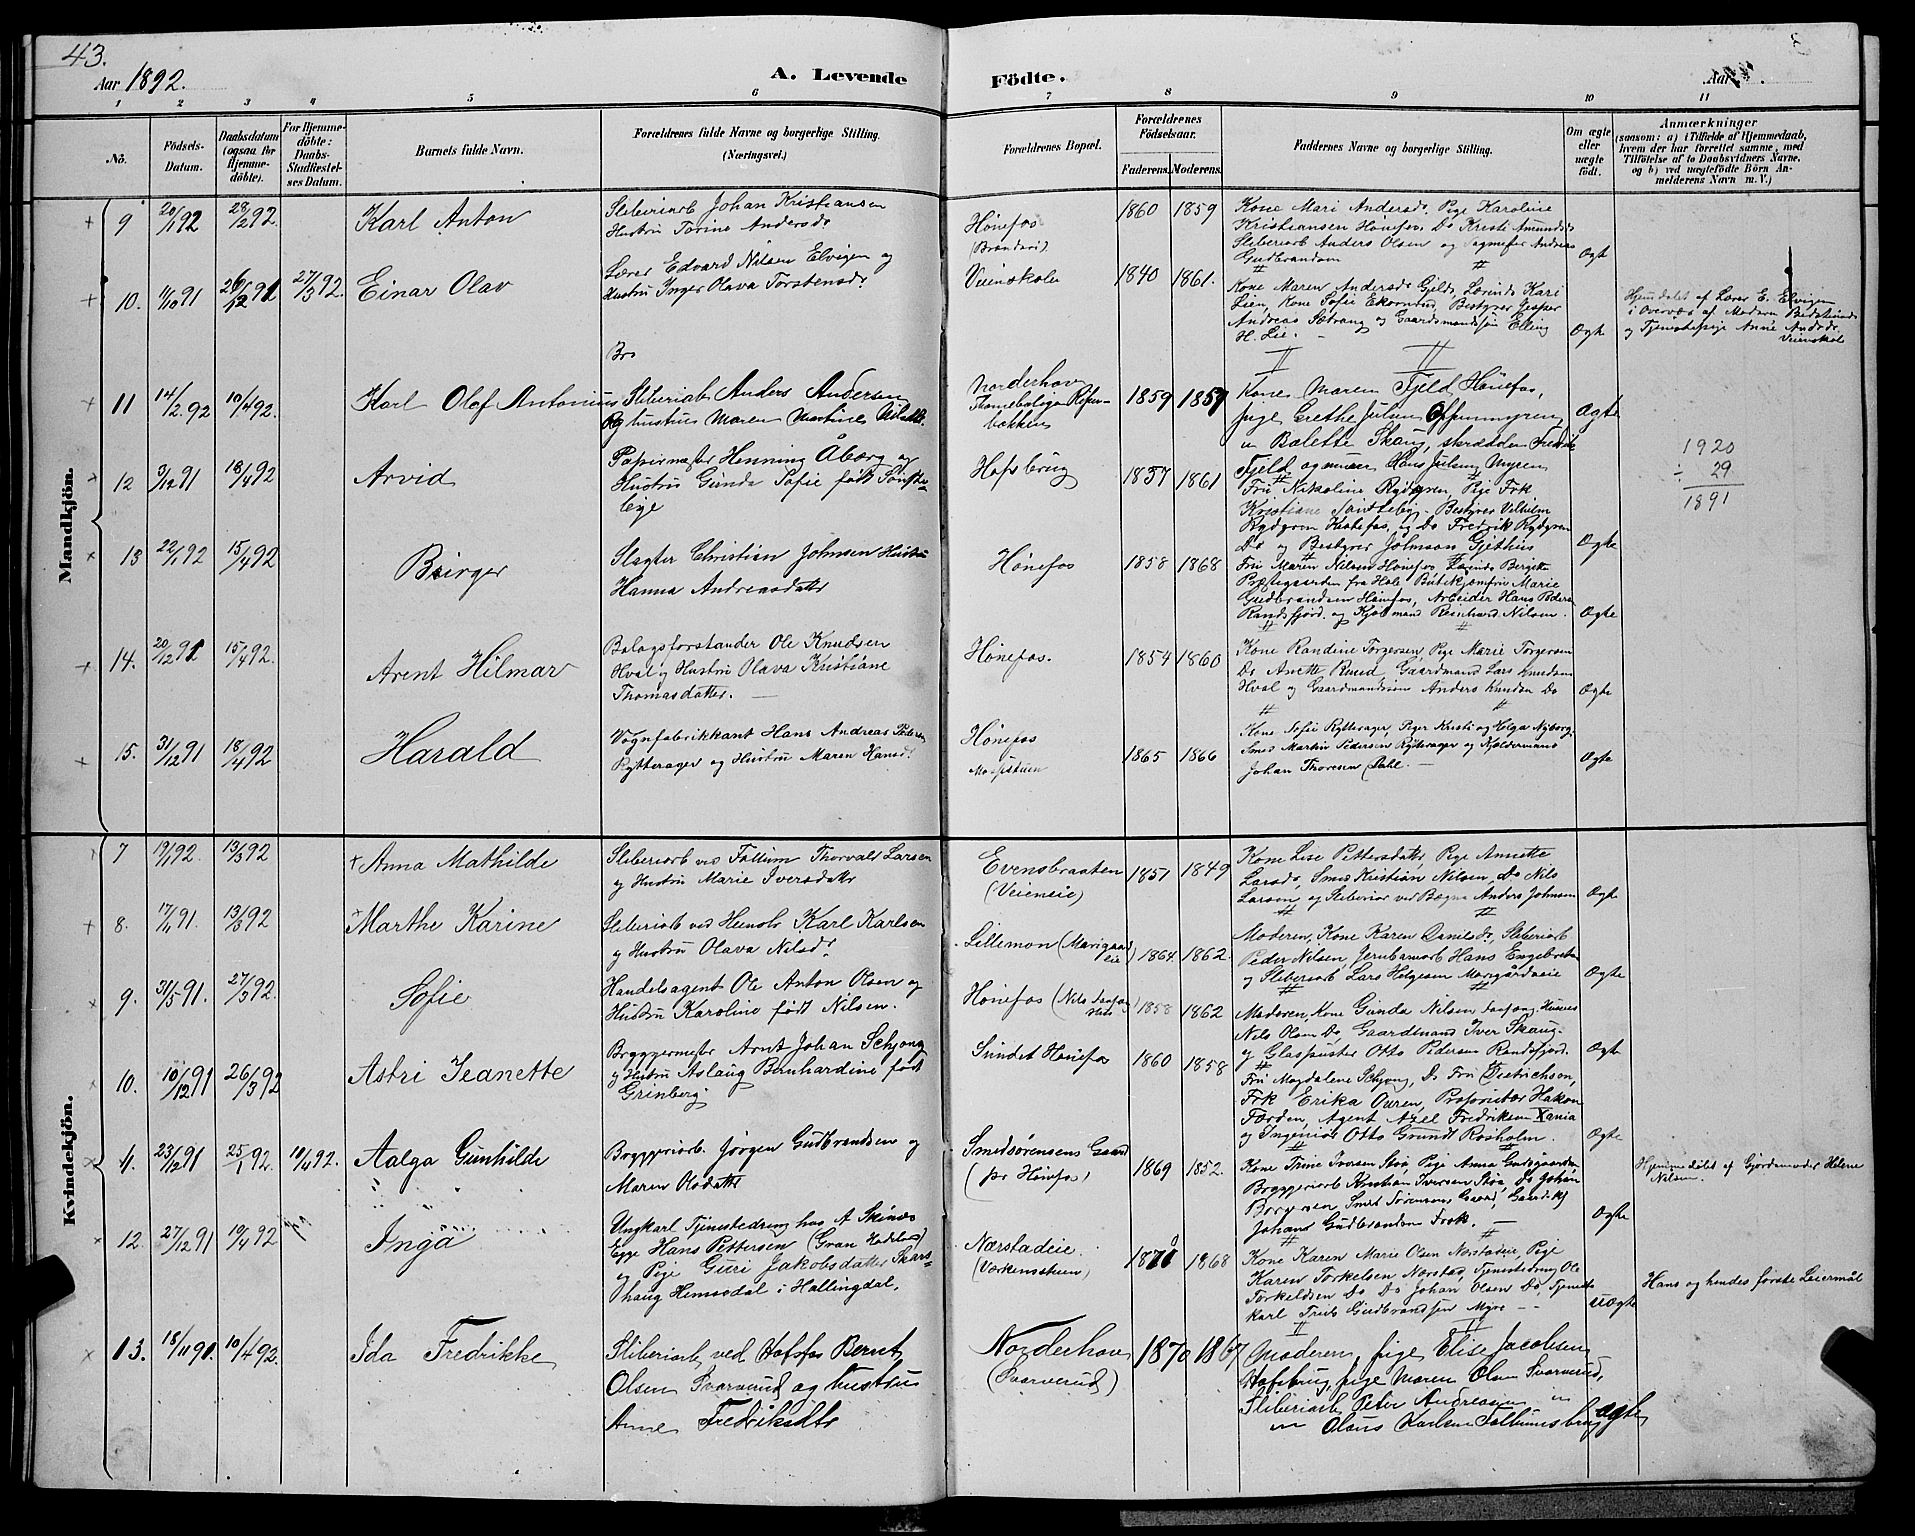 43.
Aar 1892.
A. Levende
Födte.
Aar
1 2 3 4 5 6 7 8 9 10 11
No.
Födsels-Datum.
Daabsdatum (ogsaa for Hjemme-döbte).
For Hjemme-döbte: Daabs-Stadfæstel-ses Datum.
Barnets fulde Navn.
Forældrenes fulde Navne og borgerlige Stilling. (Næringsvei.)
Forældrenes Bopæl.
Forældrenes Födselsaar.
Faderens. Moderens.
Faddernes Navne og borgerlige Stilling.
Om ægte eller uægte födt.
Anmærkninger
(saasom: a) i Tilfælde af Hjemmedaab, hvem der har forrettet samme, med Tilföielse af to Daabsvidners Navne, og b) ved uægtefödte Börn An-melderens Navn m. V.)
Mandkjön.
9 20/1 92 28/2 92. Karl Anton
Sliberiarb Johan Kristiansen
Hustru Torine Andersd.
Hönefos
(Brænderi)
1860 1859
Kone Mari Andersd. Pige Karoline
Kristiansen Hönefos, Do Kristi Amundsd.
Sliberiarb Anders Olsen og Andreas
Gudbrandsen
Ægte
10. 11/10 91 26/12 91 27/3 92. Einar Olav
Lærer Edvard Nilsen Elvigen og
Hustru Inger Olava Torstensd.
Veienskolen
1840 1861.
Kone Maren Andersd. Gjeld, Lærerinde Kari
Lien, Kone Sofie Ekornrud, Bestyrer Jesper
Andreas Sætrang og Gaardmandssön Elling
H. Lie.
Ægte
Hjemdöbt af Lærer E. Elvigen
i Overvær af Madam
og Tjenestepige Anne Andrd.
Veienskole
11 14/2 92 10/4 92. Karl Olof Antonius
Sliberiarb Anders Andersen
og hustru Maren Martine
Norderhov
1859 1857
Kone Maren Fjeld Hönefos,
pige Grethe Julsen
Balette Skaug, skrædder Fredr.
Fjeld og Hans Julsen Myren
Ægte
12 3/12 91 18/4 92 Arvid
Papirmester Henning Åberg og
Hustru Gunda Sofie født
Hofsbrug
1857 1861
Fru Nikoline Rydgren, Pige Frk.
Kristiane Bestyrer Vilhelm
Rydgren Hönefos, og Do Fredrik Rydgren
Do og Bestyrer Johnson Gjethus
Ægte
1920
÷ 29
1891
13 22/1 92 15/4 92 Birger
Slagter Christian Johnsen Hustru
Hanna Andreasdatt.
Hönefos
1858 1868
Fru Maren Nilsen Hönefos, Lærerinde Bergitte
Præstegaarden fra Hole, Butikjomfru Marie
Gudbrandsen Hönefos, Arbeider Hans Peders.
Randsfjord og Kjöbmand Reinhard Nilsen.
Ægte
14. 20/12 91 15/4 92. Arent Hilmar
Bolagsforstander Ole Knudsen
Hval og Hustru Olava Kristiane
Thomasdatter.
Hönefos.
1854 1860
Kone Randine Torgersen, Pige Marie Torgersen
Do Anette Ruud, Gaardmand Lars Knudsen
Hval og Gaardmandssön Anders Knudsen Do
Ægte
15. 31/12 91 18/4 92 Harald
Vognfabrikkant Hans Andreas Pedersen
Rytterager og Hustru Maren Hansd.
Hönefos
1865 1866
Kone Sofie Rytterager, Piger Kristi og Helga Nyborg,
Smed Martin Pedersen Rytterager og
Johan Thoresen Dahl.
Ægte
Kvindekjön.
7 19/1 92. 13/3 92 Anna Mathilde
Sliberiarb ved Follum Thorvald Larsen
og Hustru Marie Iversdatt.
Evensbraaten
(Veieneie)
1851 1849
Kone Lise Pettersdatt., Pige Annette
Larsd., Smed Kristian Nilsen, Do Nils
Larsen, og Sliberiar. ved Bægna Anders Johnsen
Ægte
8. 17/1 91. 13/3 92 Marthe Karine
Sliberiarb ved Karl Karlsen
og Hustru Olava Nilsd.
Lillemon (Mørigaard eie)
1864. 1862.
Moderen, Kone Karen Danielsd., Sliberiarb
Peder Nilsen Jernbanearb Hans Engebretsen
og Sliberiarb Lars Helgesen
Ægte
9. 31/5 91. 27/3 92. Sofie
Handelsagent Ole Anton Olsen og
Hustru Karoline født Nilsen.
Hönefos
1858 1862
Moderen, Kone Gunda Nilsen
Nils Olsen Do, Gaardmand Iver Skaug
og Glaspuster Otto Pedersen Randsfjord.
Ægte
10. 10/12 91 26/3 92 Astri Jeanette
Bryggermester Arnt Johan Schjong
og Hustru Aslaug Bernhardine født
Grinberg
Sundet Hönefos
1860 1858
Fru Magdalene Schjong, Do Fru Dietrichsen,
Frk Erika Ouren, Proprietær Hakon
Agent Axel Fredriksen Xania
og Ingeniör Otto Grundt Rosholm.
Ægte
11. 23/12 91 25/1 92. 10/4 92. Aalga Gunhilde
Bryggeriarb. Jörgen Gudbrandsen og
Maren Olsdatt.
Smedsörensens Gaard
(pr Hönefos)
1869 1852.
Kone Trine Iversen Stoa, Pige Anna
Bryggeriarb Kristian Iversen Stoa, Do Johan
Smed Sörensens Gaard,
Johans Gudbrandsen Frok.
Ægte
Hjemmedöbt af Gjordemoder Helene
Nilsen.
12. 27/12 91 19/4 92 Inga
Ungkarl Tjenestedreng hos A. Skinnes
Egge Hans Pettersen (Gran Hadeland)
og Pige Guri Jakobsdatter
haug Hemsedal i Hallingdal.
Nærstadeie.
1870 1868
Kone Karen Marie Olsen Nærstadeie, Pige
Karen Torkelsen Nærstad, Tjenestedreng Ole
Torkeldsen Do Do Johan Olsen Do, Tjeneste
karl Fritz Gudbrandsen Myre
uægte
Hans og hendes förste Leiermål
13. 18/11 91. 10/4 92. Ida Fredrikke
Sliberiarb ved Hofsfos Bernt
Olsen Svarverud og hustru
Anne Fredriksdtr
Norderhov
(Svarverud)
1870 1867
Moderen, pige Elise Jacobsen
Hofsbrug, pige Maren Olsen Svarverud,
Sliberiarb Peter Andreasen
Olaus Karlsen Follumsbrug
ægte